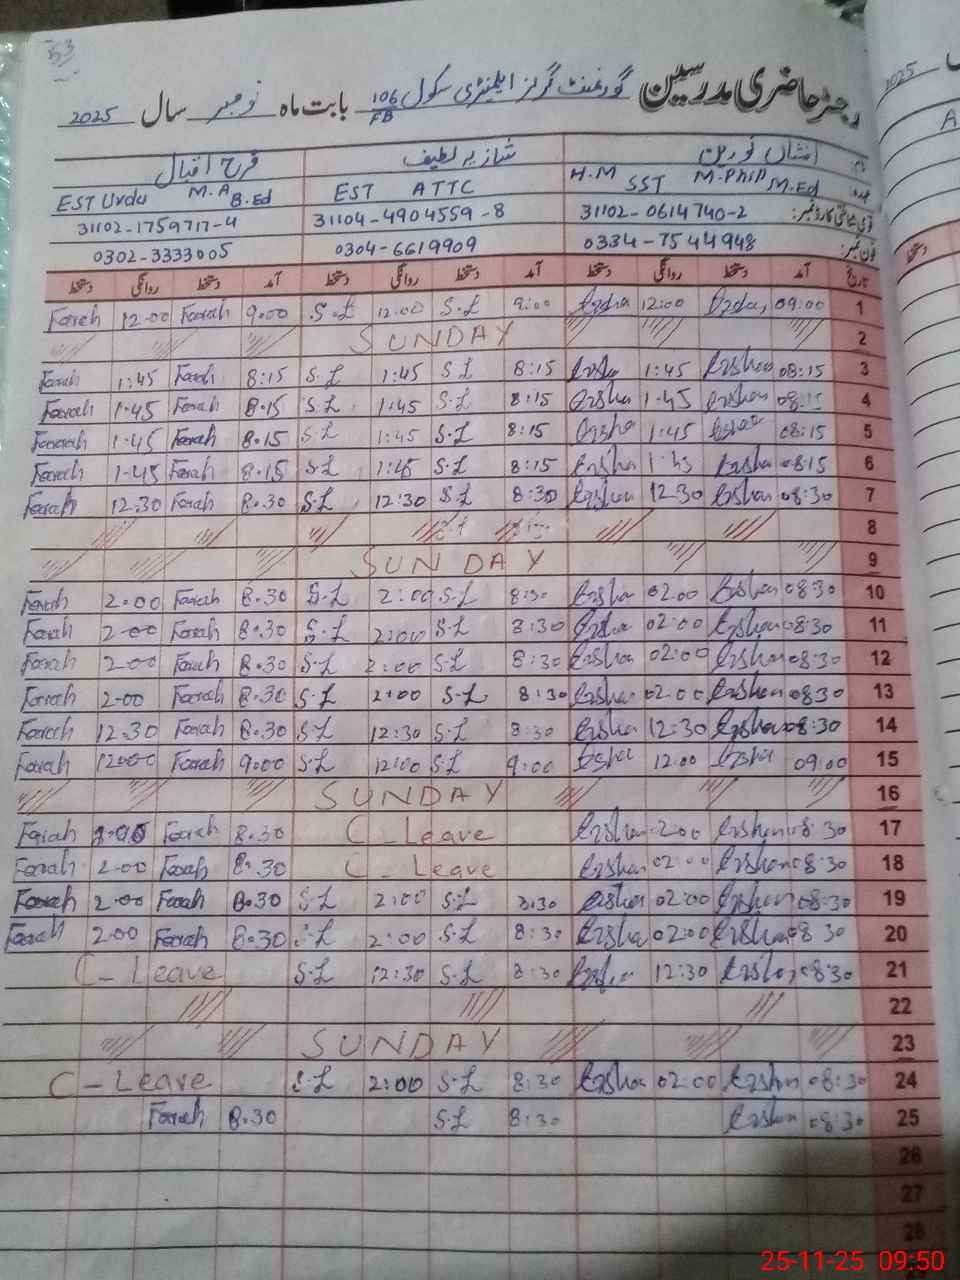 53
رجسٹر حاضری مدرسین گورنمنٹ گرلز ایلیمنٹری سکول 106/FB بابت ماہ نومبر سال 2025
2025
نام: افشاں نورین شازیہ لطیف فرح اقبال
عہدہ: H.M SST M.Phil M.Ed EST ATTC EST Urdu M.A B.Ed
قومی شناختی کارڈ نمبر: 31102-0614740-2 31104-4904559-8 31102-1759717-4
فون نمبر: 0334-7544948 0304-6619909 0302-3333005
تاریخ آمد دستخط روانگی دستخط آمد دستخط روانگی دستخط آمد دستخط روانگی دستخط
دستخط
1 09:00 12:00 9:00 S.L 12:00 S.L 9.00 Farah 12.00 Farah
2 SUNDAY
3 08:15 1:45 8:15 S.L 1:45 S.L 8:15 Farah 1:45 Farah
4 08:15 1.45 8:15 S.L 1:45 S.L 8.15 Farah 1.45 Farah
5 08:15 1:45 8:15 S.L 1:45 S.L 8.15 Farah 1.45 Farah
6 08:15 1:45 8:15 S.L 1:45 S.L 8.15 Farah 1.45 Farah
7 08:30 12.30 8:30 S.L 12:30 S.L 8.30 Farah 12.30 Farah
8
9 SUNDAY
10 08:30 02.00 8:30 S.L 2:00 S.L 8.30 Farah 2.00 Farah
11 08:30 02:00 8:30 S.L 2:00 S.L 8.30 Farah 2.00 Farah
12 08:30 02:00 8:30 S.L 2:00 S.L 8.30 Farah 2.00 Farah
13 08:30 02:00 8:30 S.L 2:00 S.L 8.30 Farah 2.00 Farah
14 08:30 12:30 8:30 S.L 12:30 S.L 8.30 Farah 12.30 Farah
15 09:00 12.00 9:00 S.L 12:00 S.L 9.00 Farah 12.00 Farah
16 SUNDAY
17 08:30 2:00 C-Leave 8.30 Farah 2.00 Farah
18 08:30 02:00 C-Leave 8.30 Farah 2.00 Farah
19 08:30 02:00 8:30 S.L 2:00 S.L 8.30 Farah 2.00 Farah
20 08:30 02:00 8:30 S.L 2:00 S.L 8.30 Farah 2.00 Farah
21 08:30 12:30 8:30 S.L 12:30 S.L C-Leave
22
23 SUNDAY
24 08:30 02:00 8:30 S.L 2:00 S.L C-Leave
25 08:30 8:30 S.L 8.30 Farah
26
27
28
25-11-25 09:50